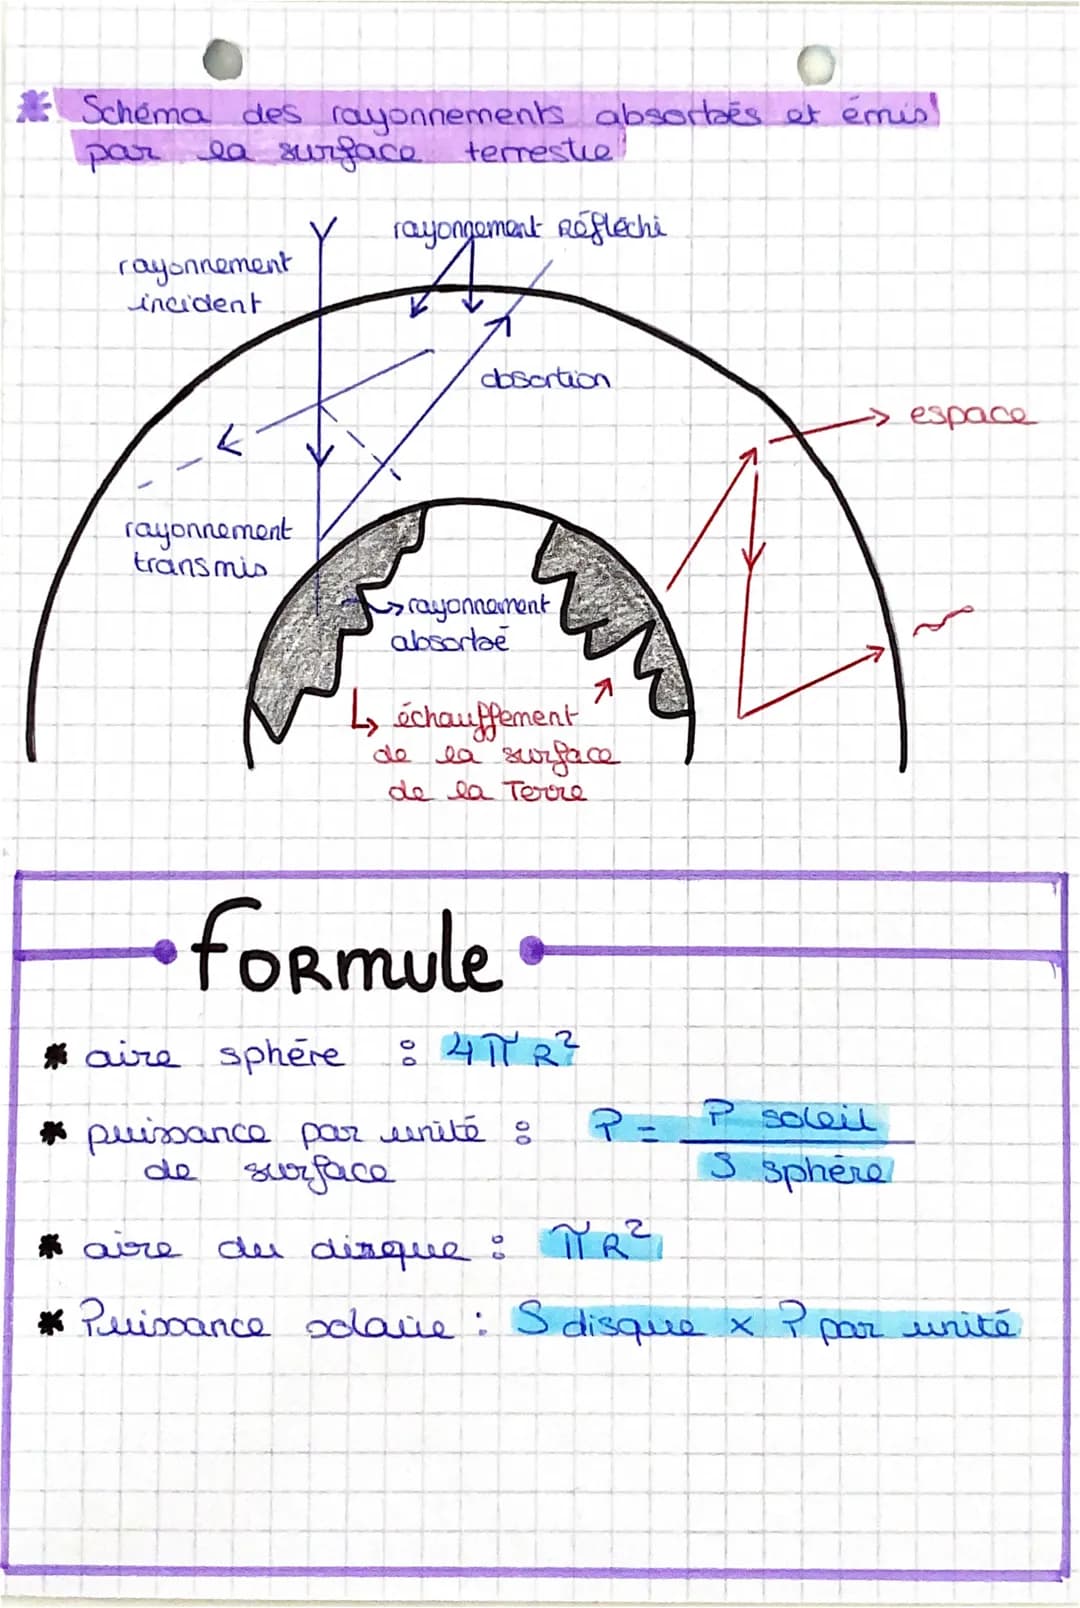 * Schéma des rayonnements absorbés et émis
par la surface terrestre
rayonnement
incident
rayongement Réfléchi
absortion
espace
rayonnement
transmis
rayonnement
absorbé
↳ échauffement
de la surface
de la Terre
formule
* aire sphére : 4πR²
* puissance par unité : P = P soleil / S sphére
de surface
* aire du disque : πR²
* Puissance solaire : S disque x P par unité